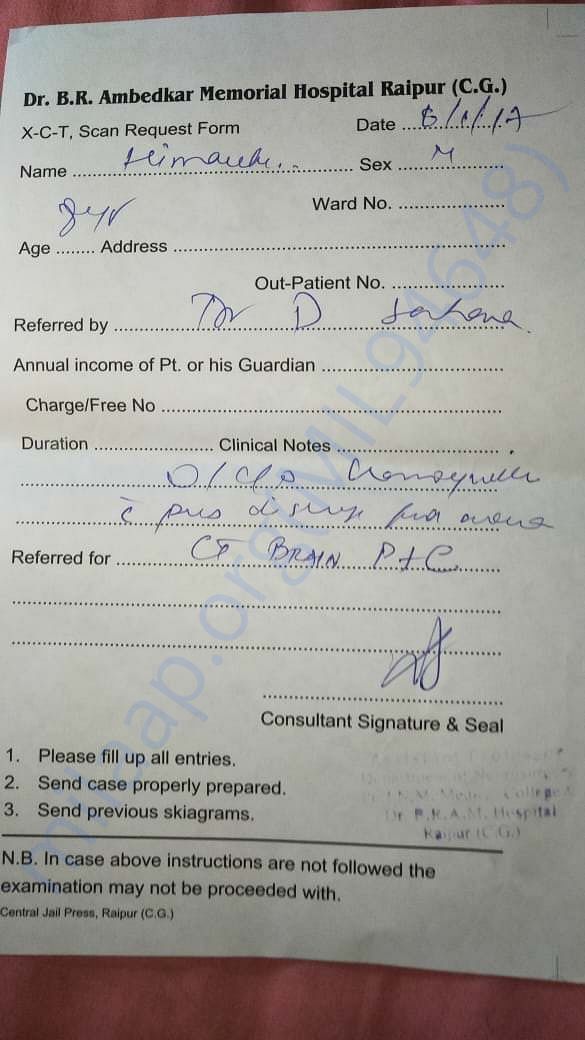 Dr. B.R. Ambedkar Memorial Hospital Raipur (C.G.)
X-C-T, Scan Request Form Date ........ /1/17
Name ........ Sex M
Ward No. ........
8yr
Age ........ Address ........
Out-Patient No. ........
Referred by Dr D
Annual income of Pt. or his Guardian ........
Charge/Free No ........
Duration ........ Clinical Notes ........
c̄ pus
Referred for CT BRAIN P+C
Consultant Signature & Seal
1. Please fill up all entries.
2. Send case properly prepared.
3. Send previous skiagrams.
College
Dr. B.R.A.M. Hospital
Raipur (C.G.)
N.B. In case above instructions are not followed the
examination may not be proceeded with.
Central Jail Press, Raipur (C.G.)
milaap.org(MIL94648)